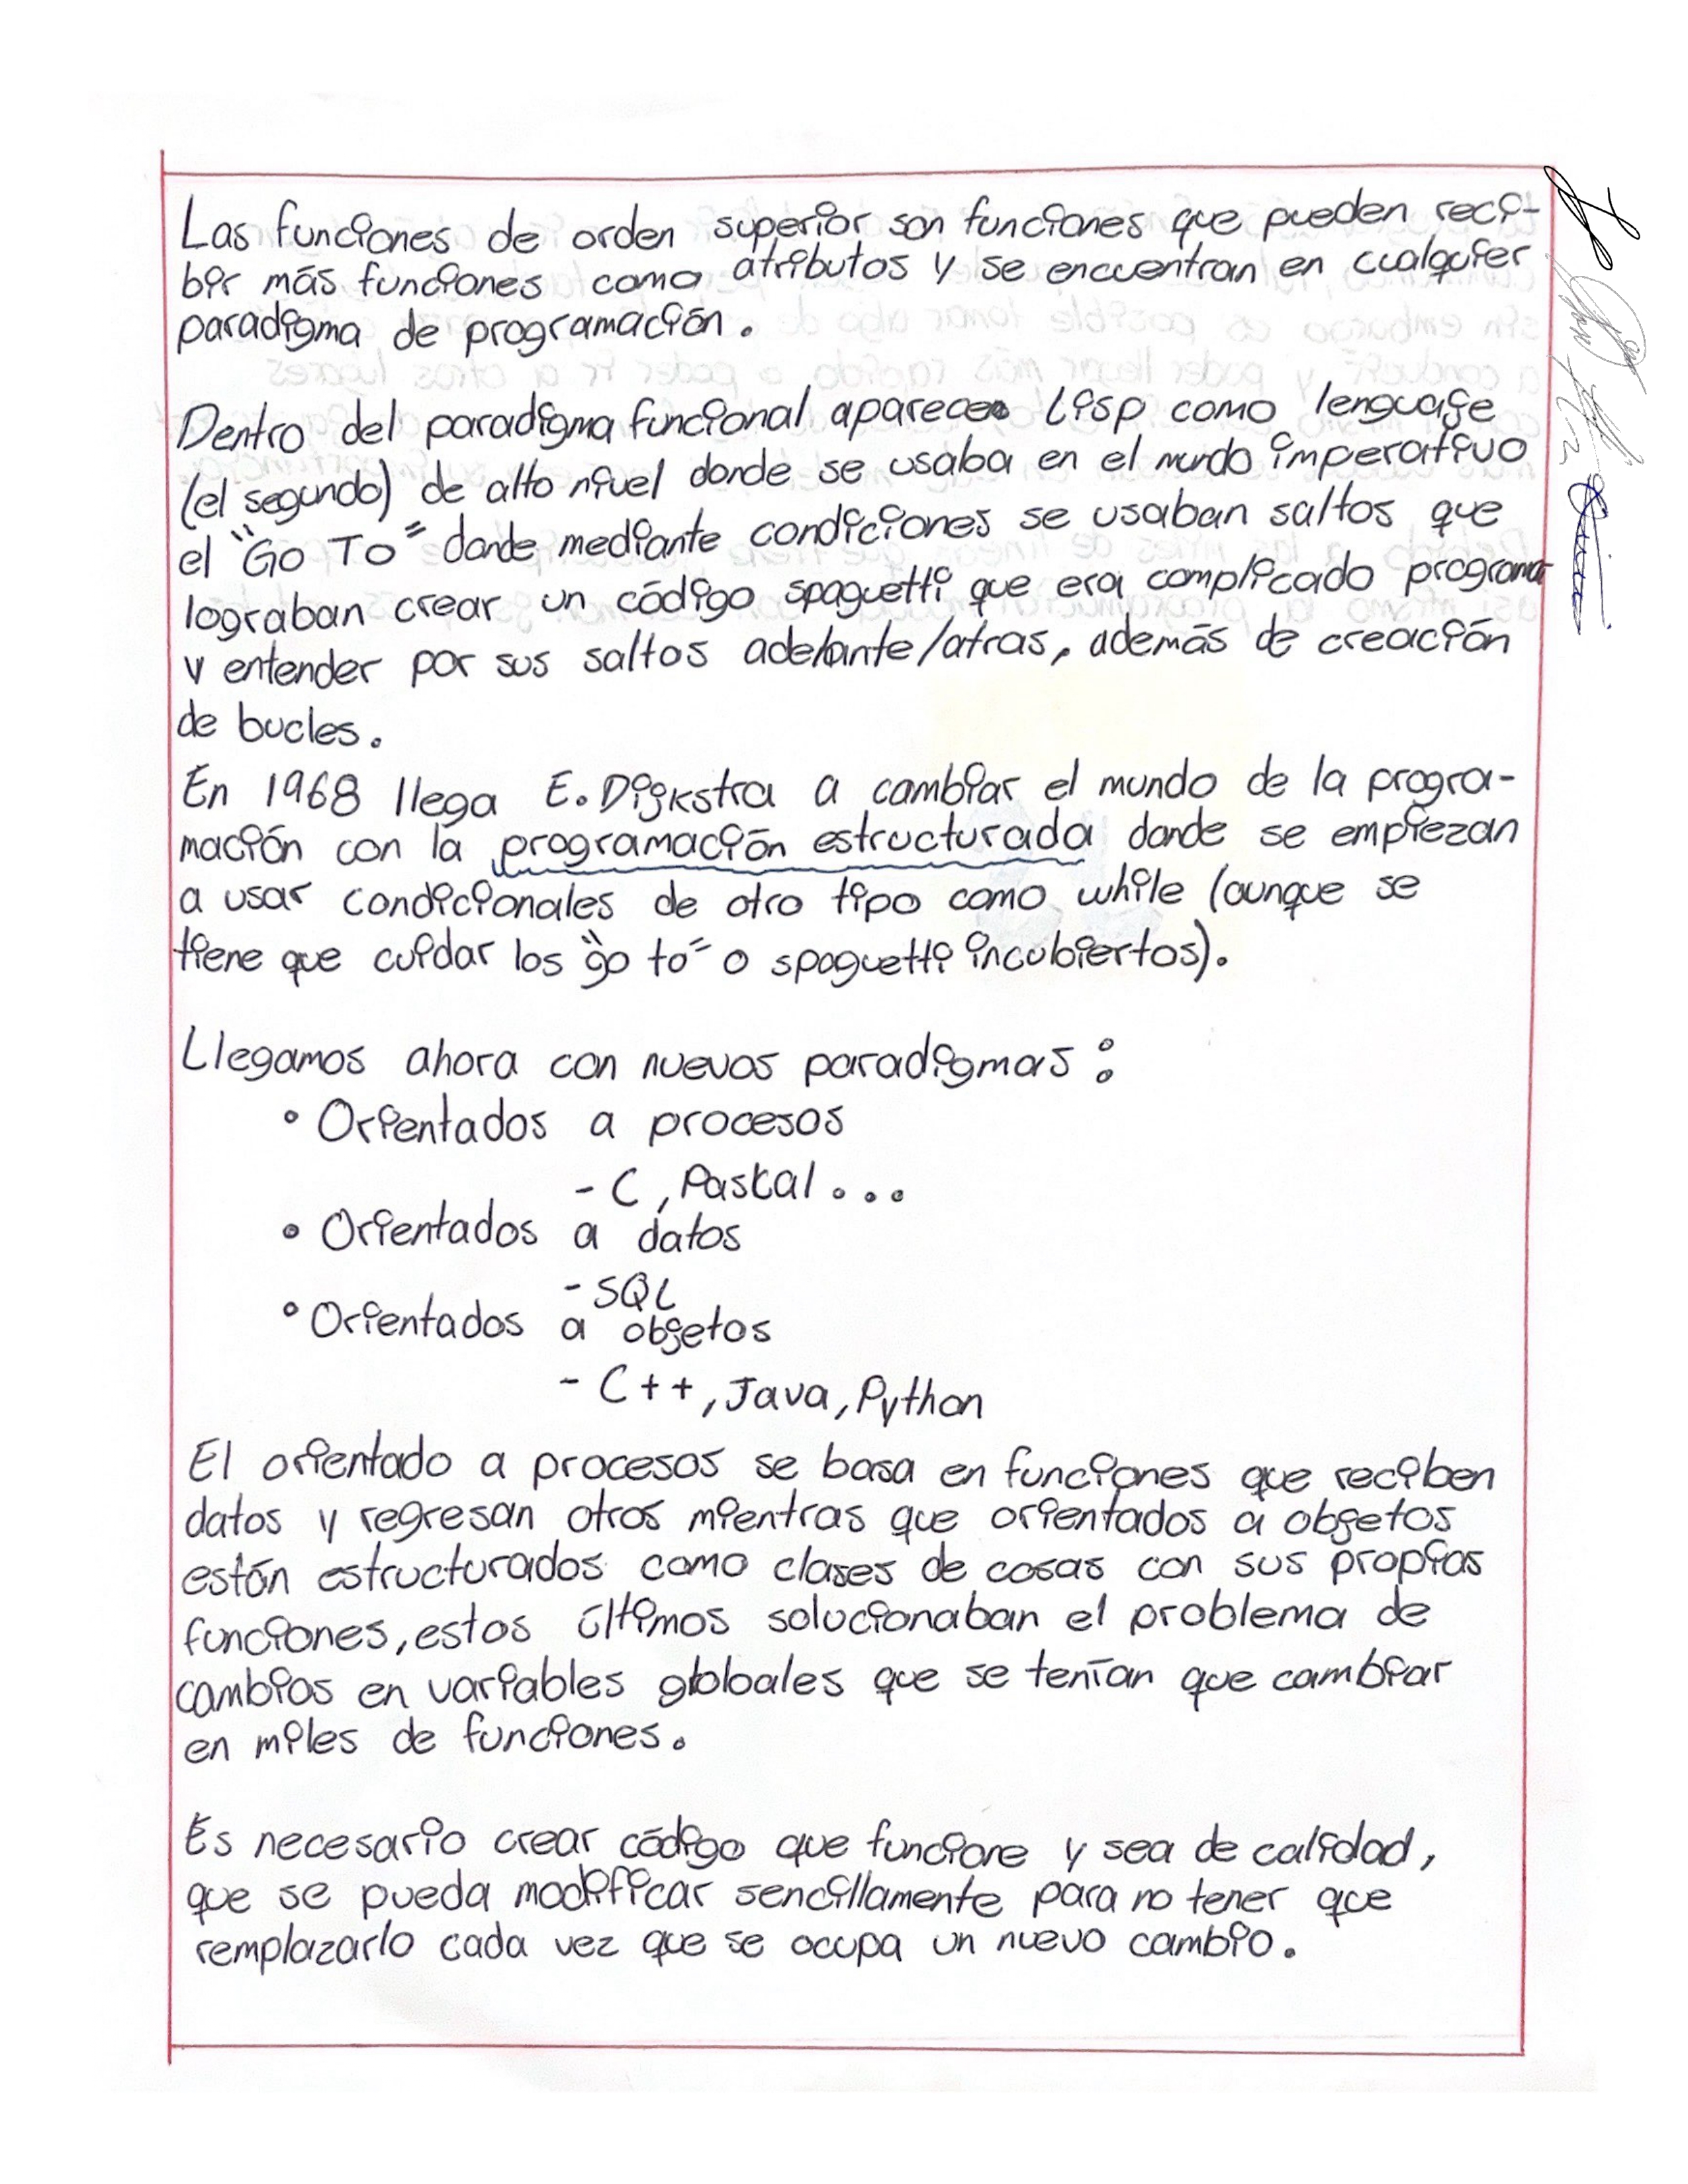 Las funciones de orden superior son funciones que pueden reci-
bir más funciones como atributos y se encuentran en cualquier
paradigma de programación.
Dentro del paradigma funcional aparece Lisp como lenguaje
(el segundo) de alto nivel donde se usaba en el mundo imperativo
el "Go To" donde mediante condiciones se usaban saltos que
lograban crear un código spaguetti que era complicado programar
y entender por sus saltos adelante/atras, además de creación
de bucles.
En 1968 llega E. Dijkstra a cambiar el mundo de la progra-
mación con la programación estructurada donde se empiezan
a usar condicionales de otro tipo como while (aunque se
tiene que cuidar los "go to" o spaguetti incubiertos).
Llegamos ahora con nuevos paradigmas:
• Orientados a procesos
- C, Paskal...
• Orientados a datos
- SQL
• Orientados a objetos
- C++, Java, Python
El orientado a procesos se basa en funciones que reciben
datos y regresan otros mientras que orientados a objetos
están estructurados como clases de cosas con sus propias
funciones, estos últimos solucionaban el problema de
cambios en variables globales que se tenían que cambiar
en miles de funciones.
Es necesario crear código que funcione y sea de calidad,
que se pueda modificar sencillamente para no tener que
remplazarlo cada vez que se ocupa un nuevo cambio.